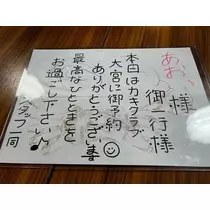 あお 様
御一行様
本日はカキクラブ
大宮に御予約
ありがとうございます
最高なひとときを
お過ごし下さい♪
スタッフ一同